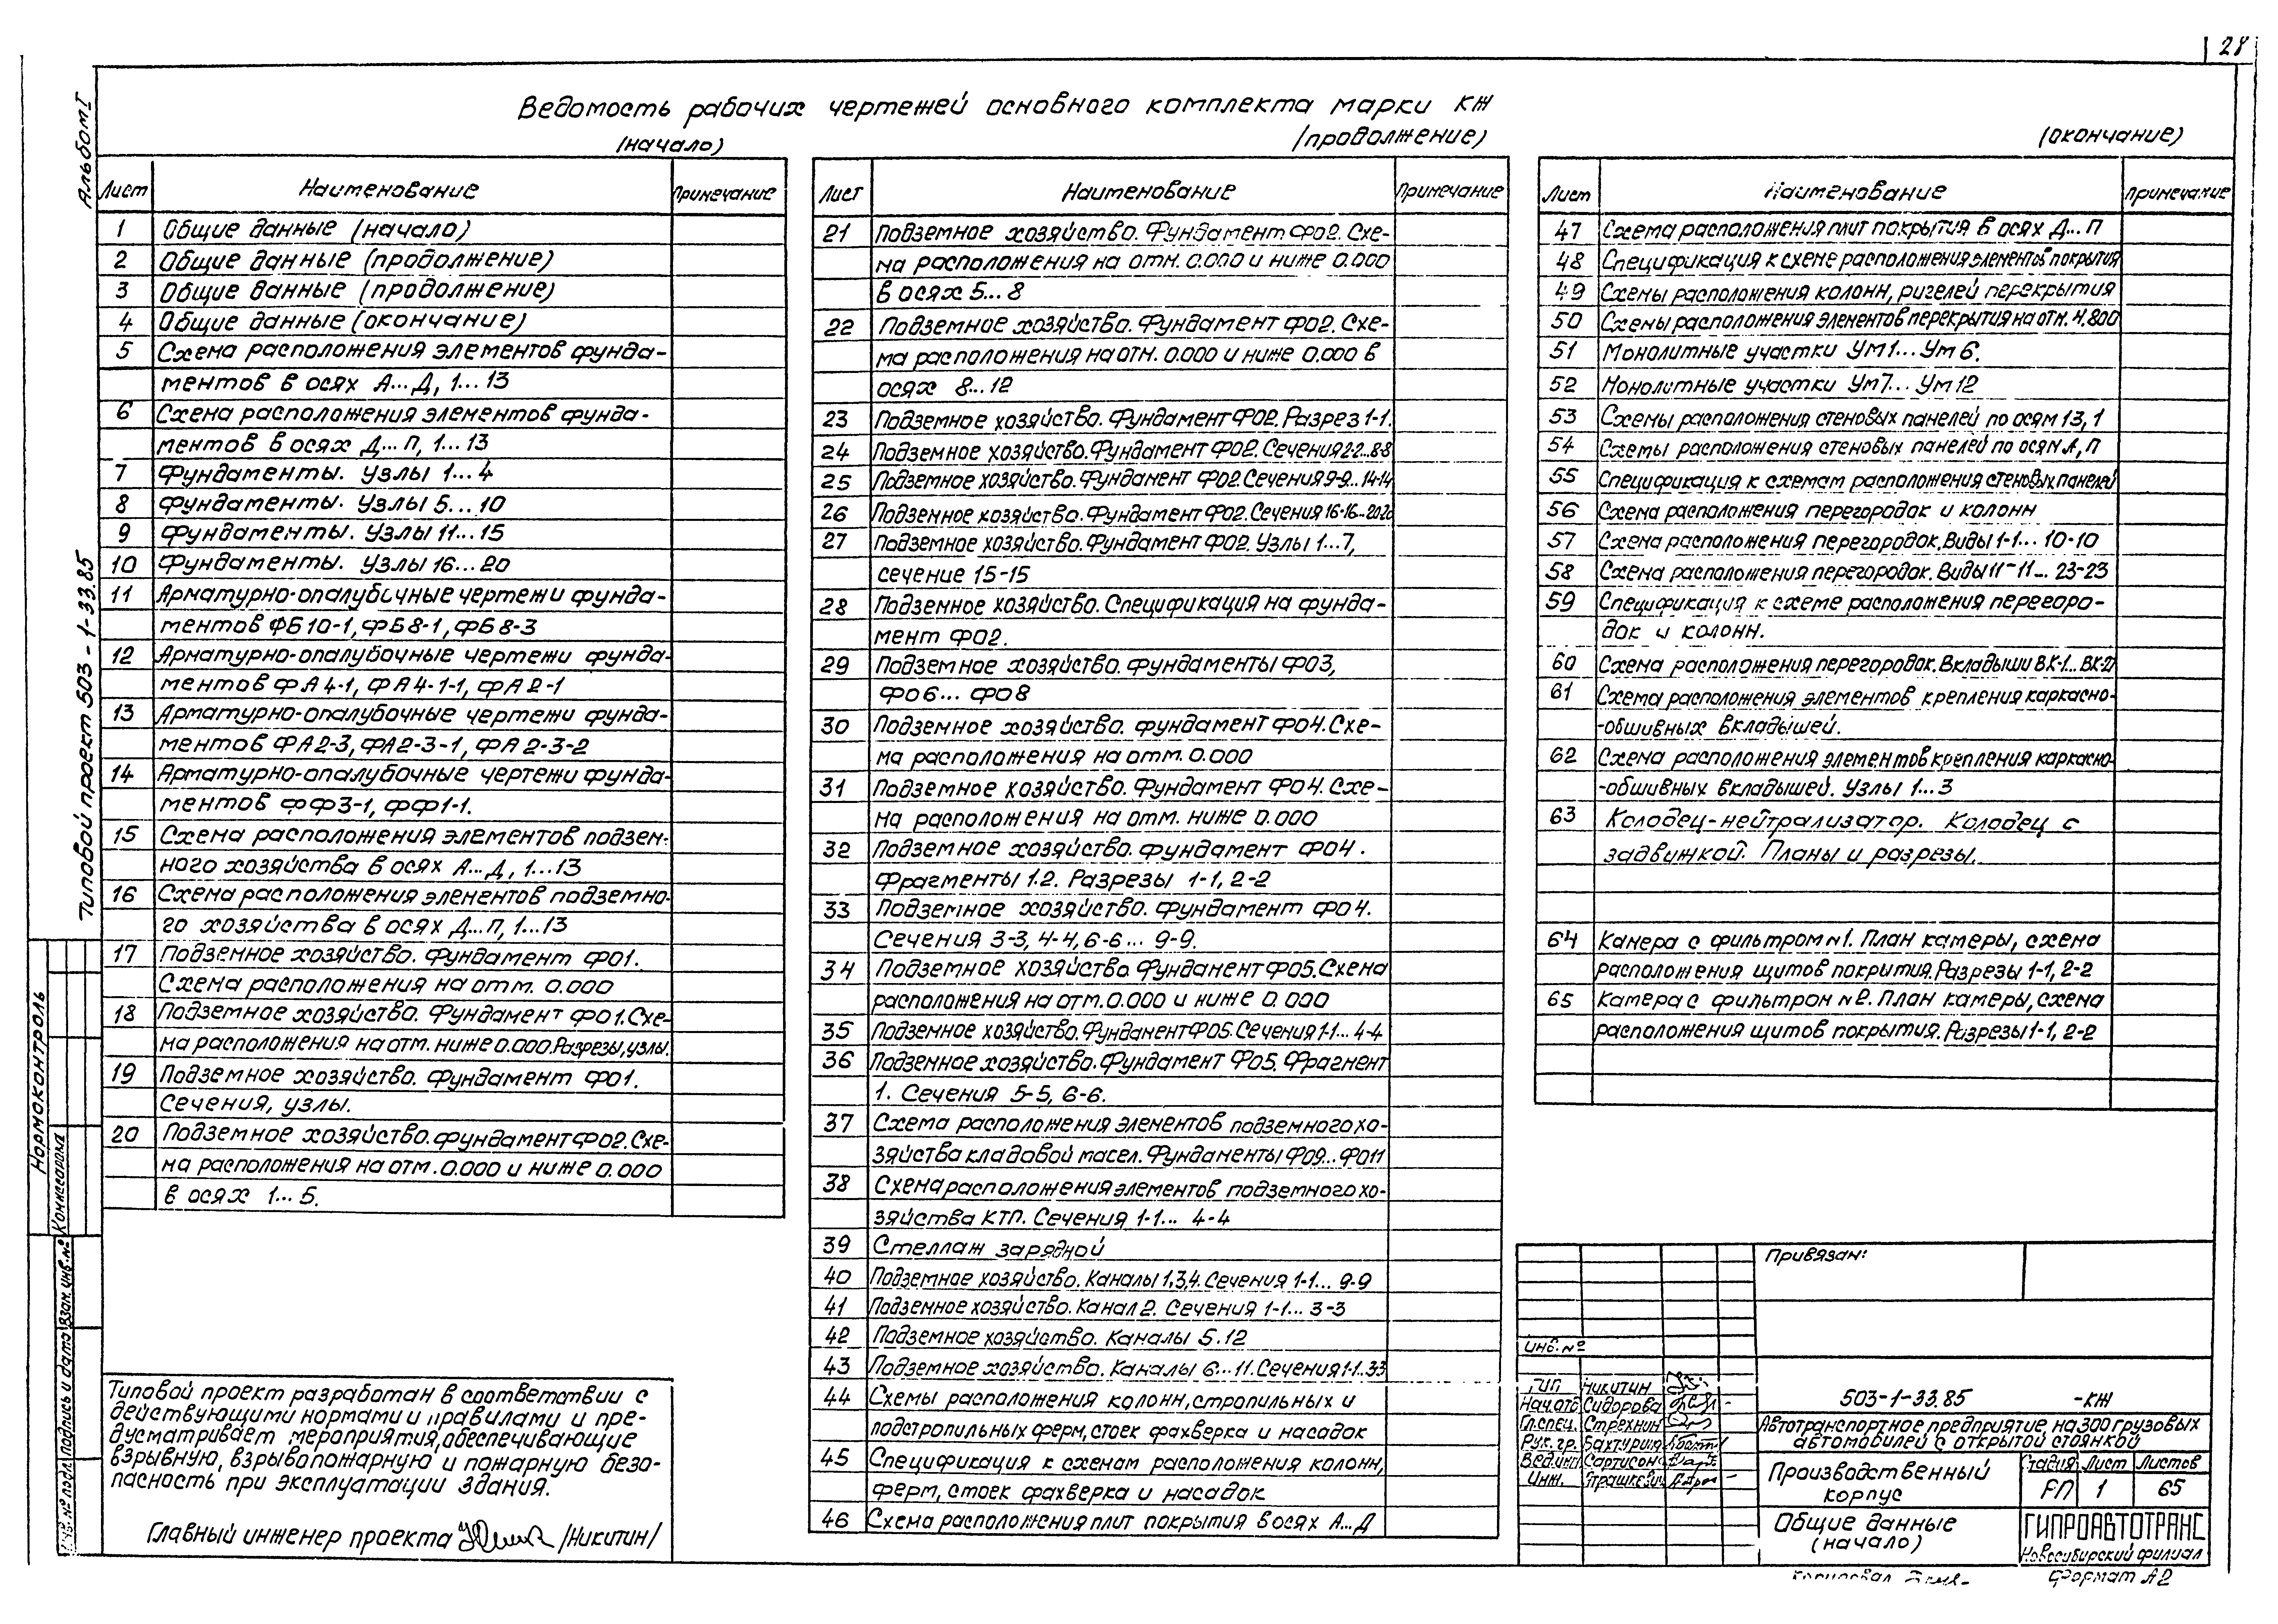 28
Альбом I
Типовой проект 503-1-33.85
Ведомость рабочих чертежей основного комплекта марки КЖ
(начало)
Лист Наименование Примечание
1 Общие данные (начало)
2 Общие данные (продолжение)
3 Общие данные (продолжение)
4 Общие данные (окончание)
5 Схема расположения элементов фунда-
ментов в осях А...Д, 1...13
6 Схема расположения элементов фунда-
ментов в осях Д...П, 1...13
7 Фундаменты. Узлы 1...4
8 Фундаменты. Узлы 5...10
9 Фундаменты. Узлы 11...15
10 Фундаменты. Узлы 16...20
11 Арматурно-опалубочные чертежи фунда-
ментов ФБ10-1, ФБ8-1, ФБ8-3
12 Арматурно-опалубочные чертежи фунда-
ментов ФА4-1, ФА4-1-1, ФА2-1
13 Арматурно-опалубочные чертежи фунда-
ментов ФА2-3, ФА2-3-1, ФА2-3-2
14 Арматурно-опалубочные чертежи фунда-
ментов ФФ3-1, ФФ1-1.
15 Схема расположения элементов подзем-
ного хозяйства в осях А...Д, 1...13
16 Схема расположения элементов подземно-
го хозяйства в осях Д...П, 1...13
17 Подземное хозяйство. Фундамент ФО1.
Схема расположения на отм. 0.000
18 Подземное хозяйство. Фундамент ФО1. Схе-
ма расположения на отм. ниже 0.000. Разрезы, узлы.
19 Подземное хозяйство. Фундамент ФО1.
Сечения, узлы.
20 Подземное хозяйство. Фундамент ФО2. Схе-
ма расположения на отм. 0.000 и ниже 0.000
в осях 1...5.
(продолжение)
Лист Наименование Примечание
21 Подземное хозяйство. Фундамент ФО2. Схе-
ма расположения на отм. 0.000 и ниже 0.000
в осях 5...8
22 Подземное хозяйство. Фундамент ФО2. Схе-
ма расположения на отм. 0.000 и ниже 0.000 в
осях 8...12
23 Подземное хозяйство. Фундамент ФО2. Разрез 1-1.
24 Подземное хозяйство. Фундамент ФО2. Сечения 2-2...8-8
25 Подземное хозяйство. Фундамент ФО2. Сечения 9-9...14-14
26 Подземное хозяйство. Фундамент ФО2. Сечения 16-16...20-20
27 Подземное хозяйство. Фундамент ФО2. Узлы 1...7,
сечение 15-15
28 Подземное хозяйство. Спецификация на фунда-
мент ФО2.
29 Подземное хозяйство. Фундаменты ФО3,
ФО6...ФО8
30 Подземное хозяйство. Фундамент ФО4. Схе-
ма расположения на отм. 0.000
31 Подземное хозяйство. Фундамент ФО4. Схе-
ма расположения на отм. ниже 0.000
32 Подземное хозяйство. Фундамент ФО4.
Фрагменты 1.2. Разрезы 1-1, 2-2
33 Подземное хозяйство. Фундамент ФО4.
Сечения 3-3, 4-4, 6-6...9-9.
34 Подземное хозяйство Фундамент ФО5. Схема
расположения на отм. 0.000 и ниже 0.000
35 Подземное хозяйство. Фундамент ФО5. Сечения 1-1...4-4
36 Подземное хозяйство. Фундамент ФО5. Фрагмент
1. Сечения 5-5, 6-6.
37 Схема расположения элементов подземного хо-
зяйства кладовой масел. Фундаменты ФО9...ФО11
38 Схема расположения элементов подземного хо-
зяйства КТП. Сечения 1-1...4-4
39 Стеллаж зарядной
40 Подземное хозяйство. Каналы 1,3,4. Сечения 1-1...9-9
41 Подземное хозяйство. Канал 2. Сечения 1-1...3-3
42 Подземное хозяйство. Каналы 5.12
43 Подземное хозяйство. Каналы 6...11. Сечения 1-1.3-3
44 Схемы расположения колонн, стропильных и
подстропильных ферм, стоек фахверка и насадок
45 Спецификация к схемам расположения колонн,
ферм, стоек фахверка и насадок
46 Схема расположения плит покрытия в осях А...Д
(окончание)
Лист Наименование Примечание
47 Схема расположения плит покрытия в осях Д...П
48 Спецификация к схеме расположения элементов покрытия
49 Схемы расположения колонн, ригелей перекрытия
50 Схемы расположения элементов перекрытия на отм. 4.800
51 Монолитные участки Ум1...Ум6.
52 Монолитные участки Ум7...Ум12
53 Схемы расположения стеновых панелей по осям 13, 1
54 Схемы расположения стеновых панелей по осям А, П
55 Спецификация к схемам расположения стеновых панелей
56 Схема расположения перегородок и колонн
57 Схема расположения перегородок. Виды 1-1...10-10
58 Схема расположения перегородок. Виды 11-11...23-23
59 Спецификация к схеме расположения перегоро-
док и колонн.
60 Схема расположения перегородок. Вкладыши ВК-1...
61 Схема расположения элементов крепления каркасно-
-обшивных вкладышей.
62 Схема расположения элементов крепления каркасно-
-обшивных вкладышей. Узлы 1...3
63 Колодец-нейтрализатор. Колодец с
задвижкой. Планы и разрезы.
64 Камера с фильтром №1. План камеры, схема
расположения щитов покрытия. Разрезы 1-1, 2-2
65 Камера с фильтром №2. План камеры, схема
расположения щитов покрытия. Разрезы 1-1, 2-2
Типовой проект разработан в соответствии с
действующими нормами и правилами и пре-
дусматривает мероприятия, обеспечивающие
взрывную, взрывопожарную и пожарную безо-
пасность при эксплуатации здания.
Главный инженер проекта /Никитин/
Нормоконтроль
Инв.№ подл. Подпись и дата Взам. инв.№
Привязан:
Инв.№
ГИП Никитин
Нач.отд Сидорова
Гл.спец. Стрехнин
Рук. гр. Бахтурина
Вед.инж Сартисон
Инж.
503-1-33.85 -КЖ
Автотранспортное предприятие на 300 грузовых
автомобилей с открытой стоянкой
Производственный
корпус
Стадия Лист Листов
РП 1 65
Общие данные
(начало)
ГИПРОАВТОТРАНС
Новосибирский филиал
Копировал
Формат А2